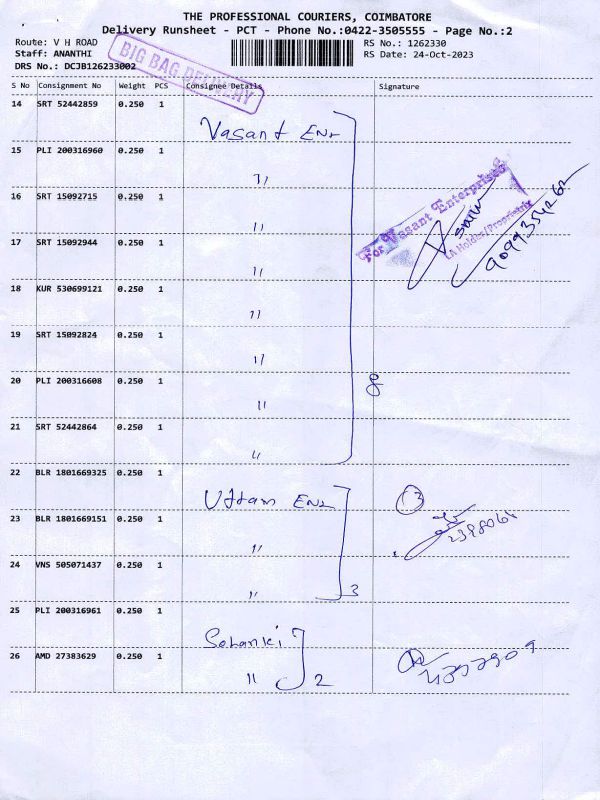 THE PROFESSIONAL COURIERS, COIMBATORE
Delivery Runsheet - PCT - Phone No.:0422-3505555 - Page No.:2
Route: V H ROAD
Staff: ANANTHI
DRS No.: DCJB126233002
RS No.: 1262330
RS Date: 24-Oct-2023
BIG BAG DELIVERY
S No Consignment No Weight PCS Consignee Details Signature
14 SRT 52442859 0.250 1 Vasant Ent
15 PLI 200316960 0.250 1 ״
16 SRT 15092715 0.250 1 ״
For Vasant Enterprises
LA Holder/Proprietrix
17 SRT 15092944 0.250 1 ״
18 KUR 530699121 0.250 1 ״
19 SRT 15092824 0.250 1 ״
20 PLI 200316608 0.250 1 ״ 8
21 SRT 52442864 0.250 1 ״
22 BLR 1801669325 0.250 1 Uttam Ent
23 BLR 1801669151 0.250 1 ״
24 VNS 505071437 0.250 1 ״ 3
25 PLI 200316961 0.250 1
26 AMD 27383629 0.250 1 ״ 2